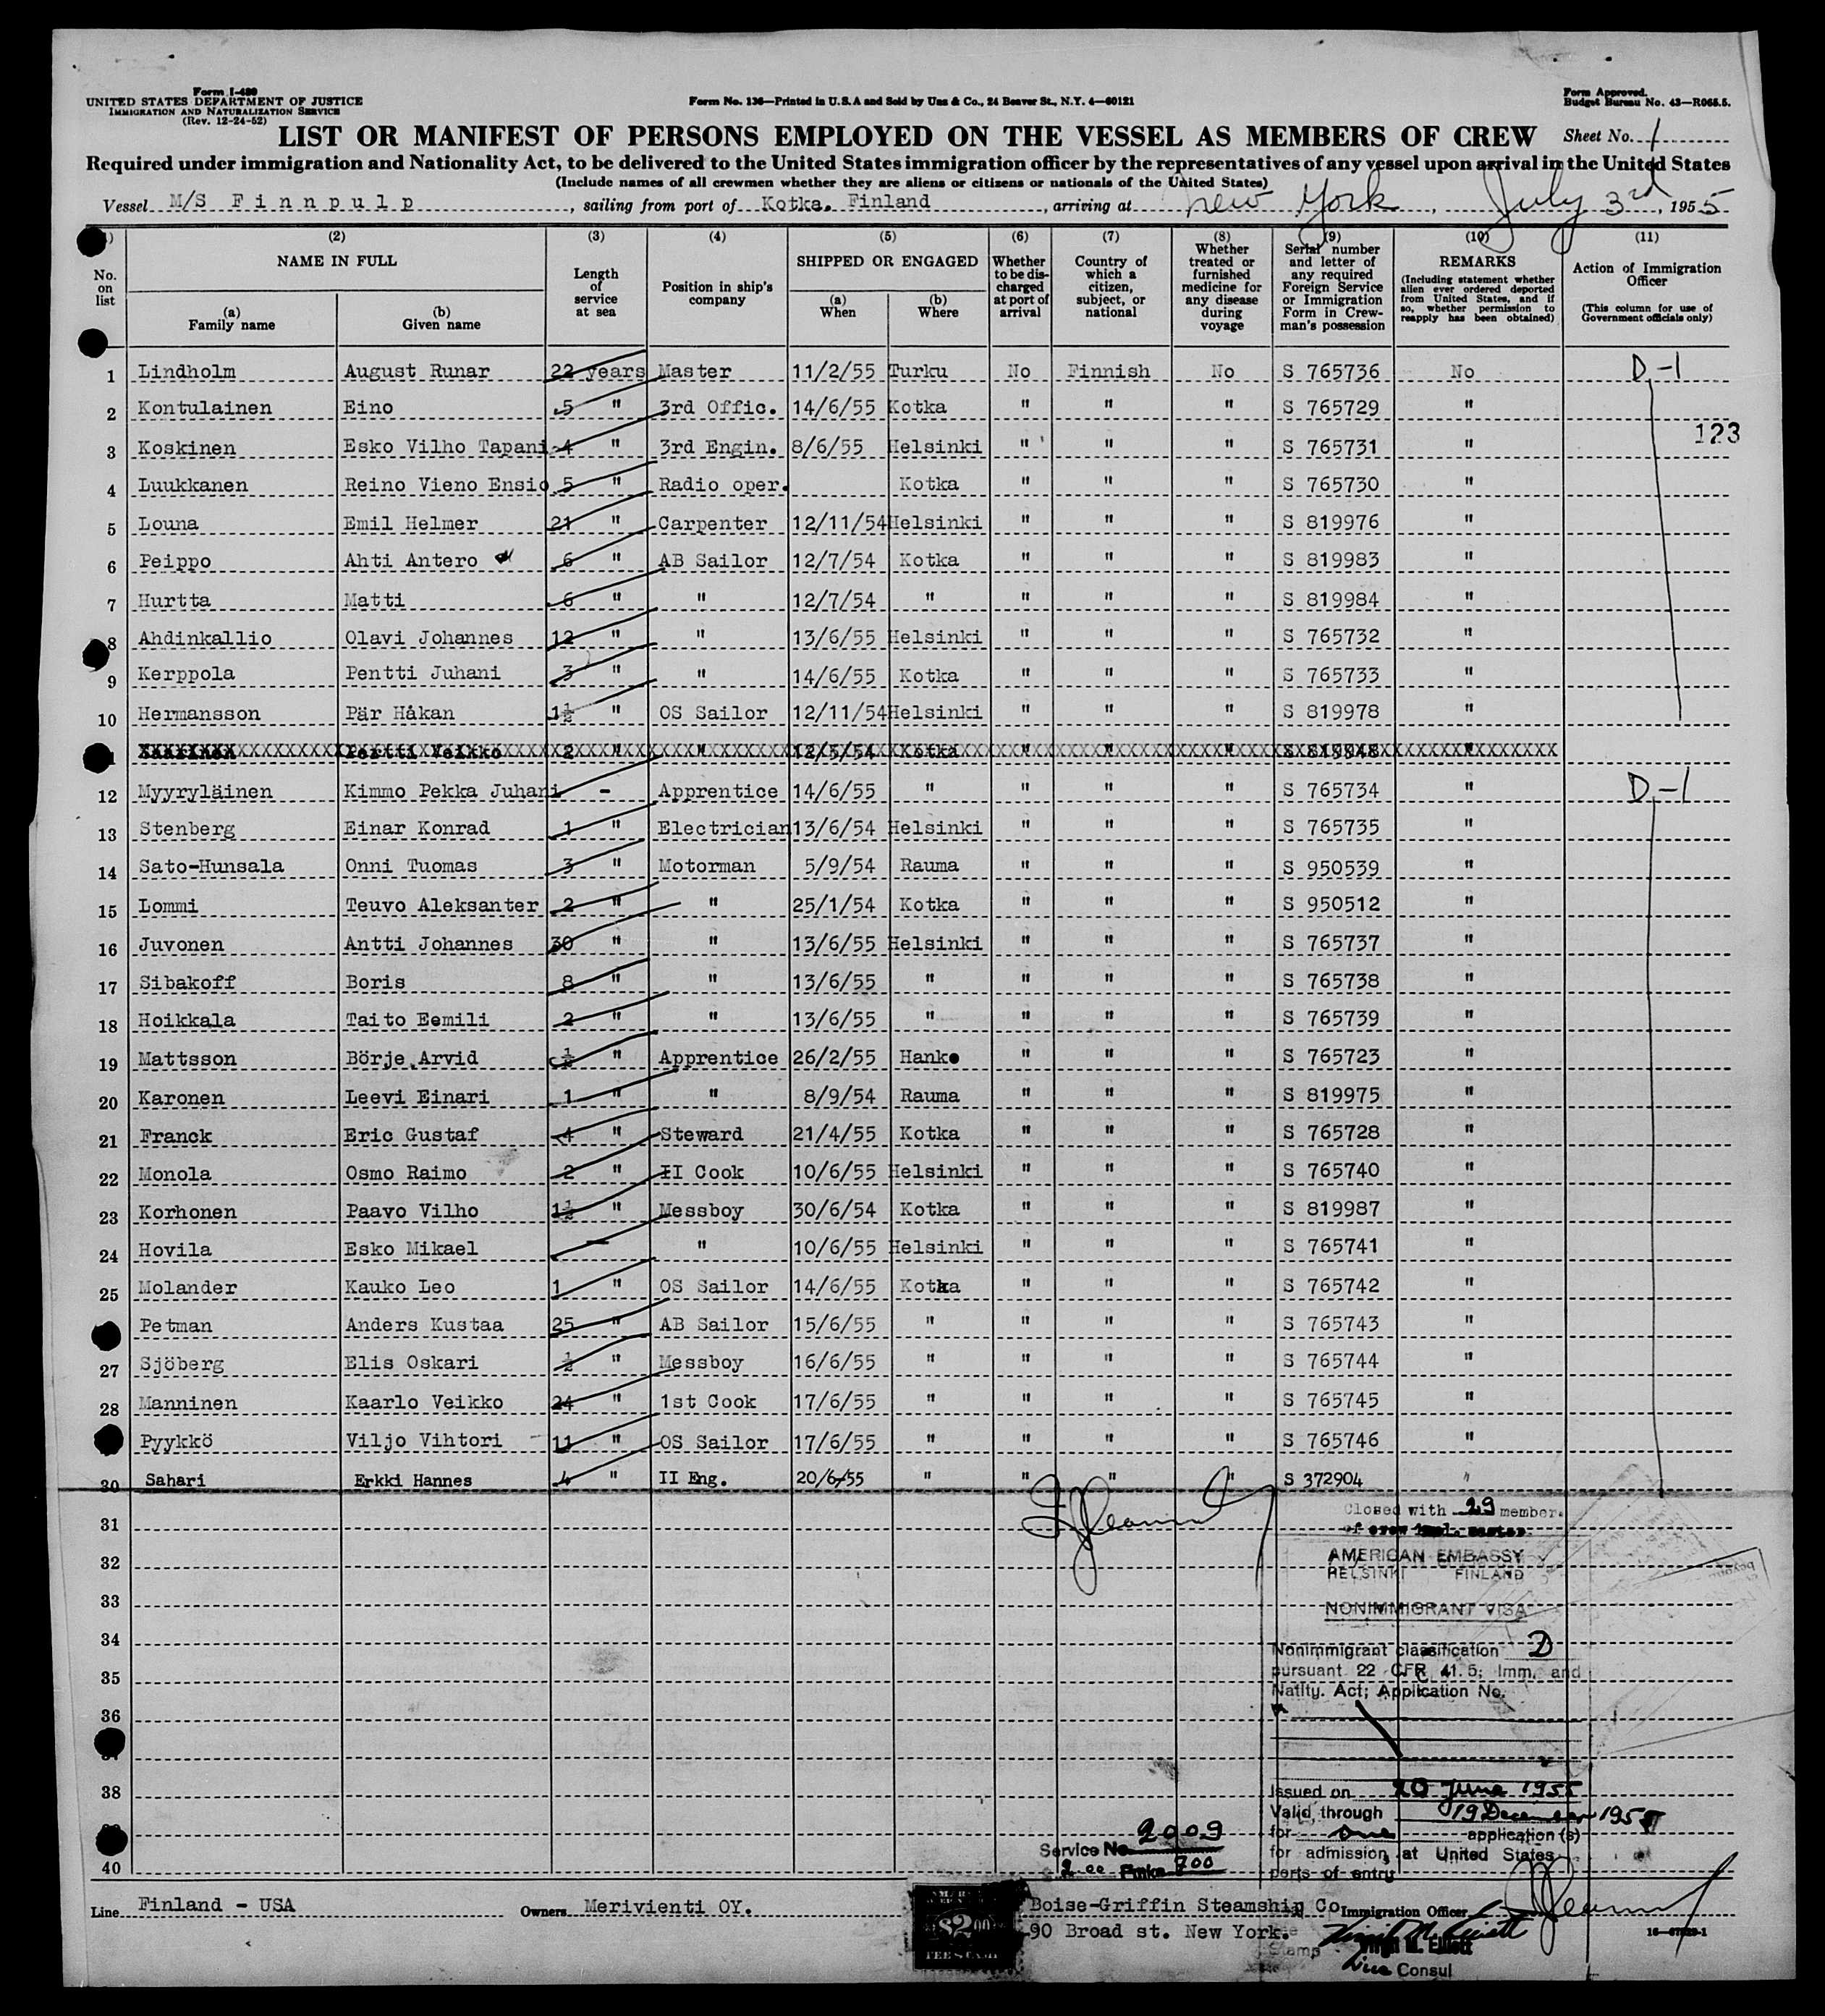 Form I-489
UNITED STATES DEPARTMENT OF JUSTICE
IMMIGRATION AND NATURALIZATION SERVICE
(Rev. 12-24-52)
Form No. 136—Printed in U.S.A and Sold by Unz & Co., 24 Beaver St., N.Y. 4—60121
Form Approved.
Budget Bureau No. 43—R065.5.
LIST OR MANIFEST OF PERSONS EMPLOYED ON THE VESSEL AS MEMBERS OF CREW Sheet No. 1
Required under immigration and Nationality Act, to be delivered to the United States immigration officer by the representatives of any vessel upon arrival in the United States
(Include names of all crewmen whether they are aliens or citizens or nationals of the United States)
Vessel M/S Finnpulp, sailing from port of Kotka. Finland, arriving at New York, July 3rd, 1955
(2) (3) (4) (5) (6) (7) (8) (9) (10) (11)
No. on list
NAME IN FULL
(a) Family name
(b) Given name
Length of service at sea
Position in ship's company
SHIPPED OR ENGAGED
(a) When
(b) Where
Whether to be discharged at port of arrival
Country of which a citizen, subject, or national
Whether treated or furnished medicine for any disease during voyage
Serial number and letter of any required Foreign Service or Immigration Form in Crewman's possession
REMARKS
(Including statement whether alien ever ordered deported from United States, and if so, whether permission to reapply has been obtained)
Action of Immigration Officer
(This column for use of Government officials only)
1 Lindholm August Runar 22 years Master 11/2/55 Turku No Finnish No S 765736 No D-1
2 Kontulainen Eino 5 " 3rd Offic. 14/6/55 Kotka " " " S 765729 "
123
3 Koskinen Esko Vilho Tapani 4 " 3rd Engin. 8/6/55 Helsinki " " " S 765731 "
4 Luukkanen Reino Vieno Ensio 5 " Radio oper. Kotka " " " S 765730 "
5 Louna Emil Helmer 21 " Carpenter 12/11/54 Helsinki " " " S 819976 "
6 Peippo Ahti Antero 6 " AB Sailor 12/7/54 Kotka " " " S 819983 "
7 Hurtta Matti 6 " " 12/7/54 " " " " S 819984 "
8 Ahdinkallio Olavi Johannes 12 " " 13/6/55 Helsinki " " " S 765732 "
9 Kerppola Pentti Juhani 3 " " 14/6/55 Kotka " " " S 765733 "
10 Hermansson Pär Håkan 1½ " OS Sailor 12/11/54 Helsinki " " " S 819978 "
Saarinen Pertti Veikko 2 " " 12/5/54 Kotka " " " S 819948 "
12 Myyryläinen Kimmo Pekka Juhani - Apprentice 14/6/55 " " " " S 765734 " D-1
13 Stenberg Einar Konrad 1 " Electrician 13/6/54 Helsinki " " " S 765735 "
14 Sato-Hunsala Onni Tuomas 3 " Motorman 5/9/54 Rauma " " " S 950539 "
15 Lommi Teuvo Aleksanter 2 " " 25/1/54 Kotka " " " S 950512 "
16 Juvonen Antti Johannes 30 " " 13/6/55 Helsinki " " " S 765737 "
17 Sibakoff Boris 8 " " 13/6/55 " " " " S 765738 "
18 Hoikkala Taito Eemili 2 " " 13/6/55 " " " " S 765739 "
19 Mattsson Börje Arvid ½ " Apprentice 26/2/55 Hanko " " " S 765723 "
20 Karonen Leevi Einari 1 " " 8/9/54 Rauma " " " S 819975 "
21 Franck Eric Gustaf 4 " Steward 21/4/55 Kotka " " " S 765728 "
22 Monola Osmo Raimo 2 " II Cook 10/6/55 Helsinki " " " S 765740 "
23 Korhonen Paavo Vilho 1½ " Messboy 30/6/54 Kotka " " " S 819987 "
24 Hovila Esko Mikael — " 10/6/55 Helsinki " " " S 765741 "
25 Molander Kauko Leo 1 " OS Sailor 14/6/55 Kotka " " " S 765742 "
Petman Anders Kustaa 25 " AB Sailor 15/6/55 " " " " S 765743 "
27 Sjöberg Elis Oskari ½ " Messboy 16/6/55 " " " " S 765744 "
28 Manninen Kaarlo Veikko 24 " 1st Cook 17/6/55 " " " " S 765745 "
Pyykkö Viljo Vihtori 11 " OS Sailor 17/6/55 " " " " S 765746 "
30 Sahari Erkki Hannes 4 " II Eng. 20/6/55 " " " " S 372904 "
31
32
33
34
35
36
38
40
Closed with 29 member.
of crew incl. master.
AMERICAN EMBASSY
HELSINKI FINLAND
NONIMMIGRANT VISA
Nonimmigrant classification D
pursuant 22 CFR 41.5; Imm. and
Natlty. Act; Application No.
Issued on 20 June 1955
Valid through 19 December 1955
for one application (s)
for admission at United States
ports of entry
Service No. 2009
2.00 Fmks 700
Line Finland - USA Owners Merivienti OY. Boise-Griffin Steamship Co. Immigration Officer
90 Broad st. New York.
$2.00
FEE STAMP
Stamp
Virgil M. Elliott
Vice Consul